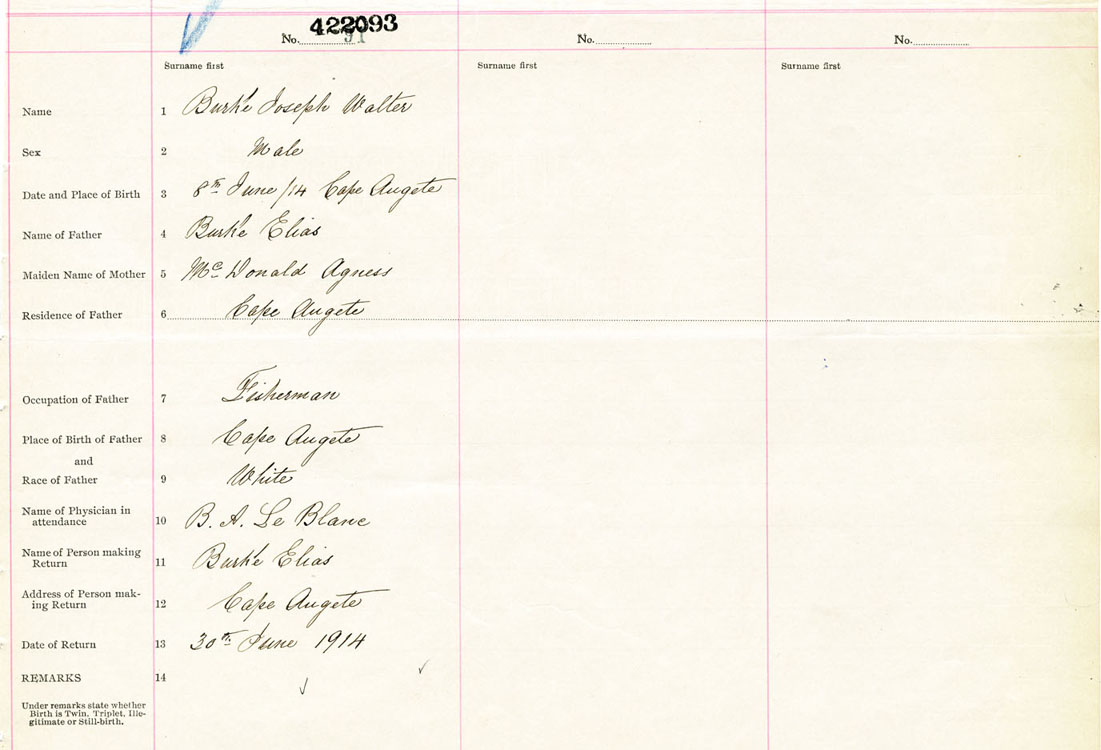 422093
No. 91 No. No.
Surname first Surname first Surname first
Name 1 Burke Joseph Walter
Sex 2 Male
Date and Place of Birth 3 8th June/14 Cape Augete
Name of Father 4 Burke Elias
Maiden Name of Mother 5 Mc Donald Agness
Residence of Father 6 Cape Augete
Occupation of Father 7 Fisherman
Place of Birth of Father 8 Cape Augete
and
Race of Father 9 White
Name of Physician in
attendance 10 B. A. Le Blanc
Name of Person making
Return 11 Burke Elias
Address of Person mak-
ing Return 12 Cape Augete
Date of Return 13 30th June 1914
REMARKS 14
Under remarks state whether
Birth is Twin, Triplet, Ille-
gitimate or Still-birth.